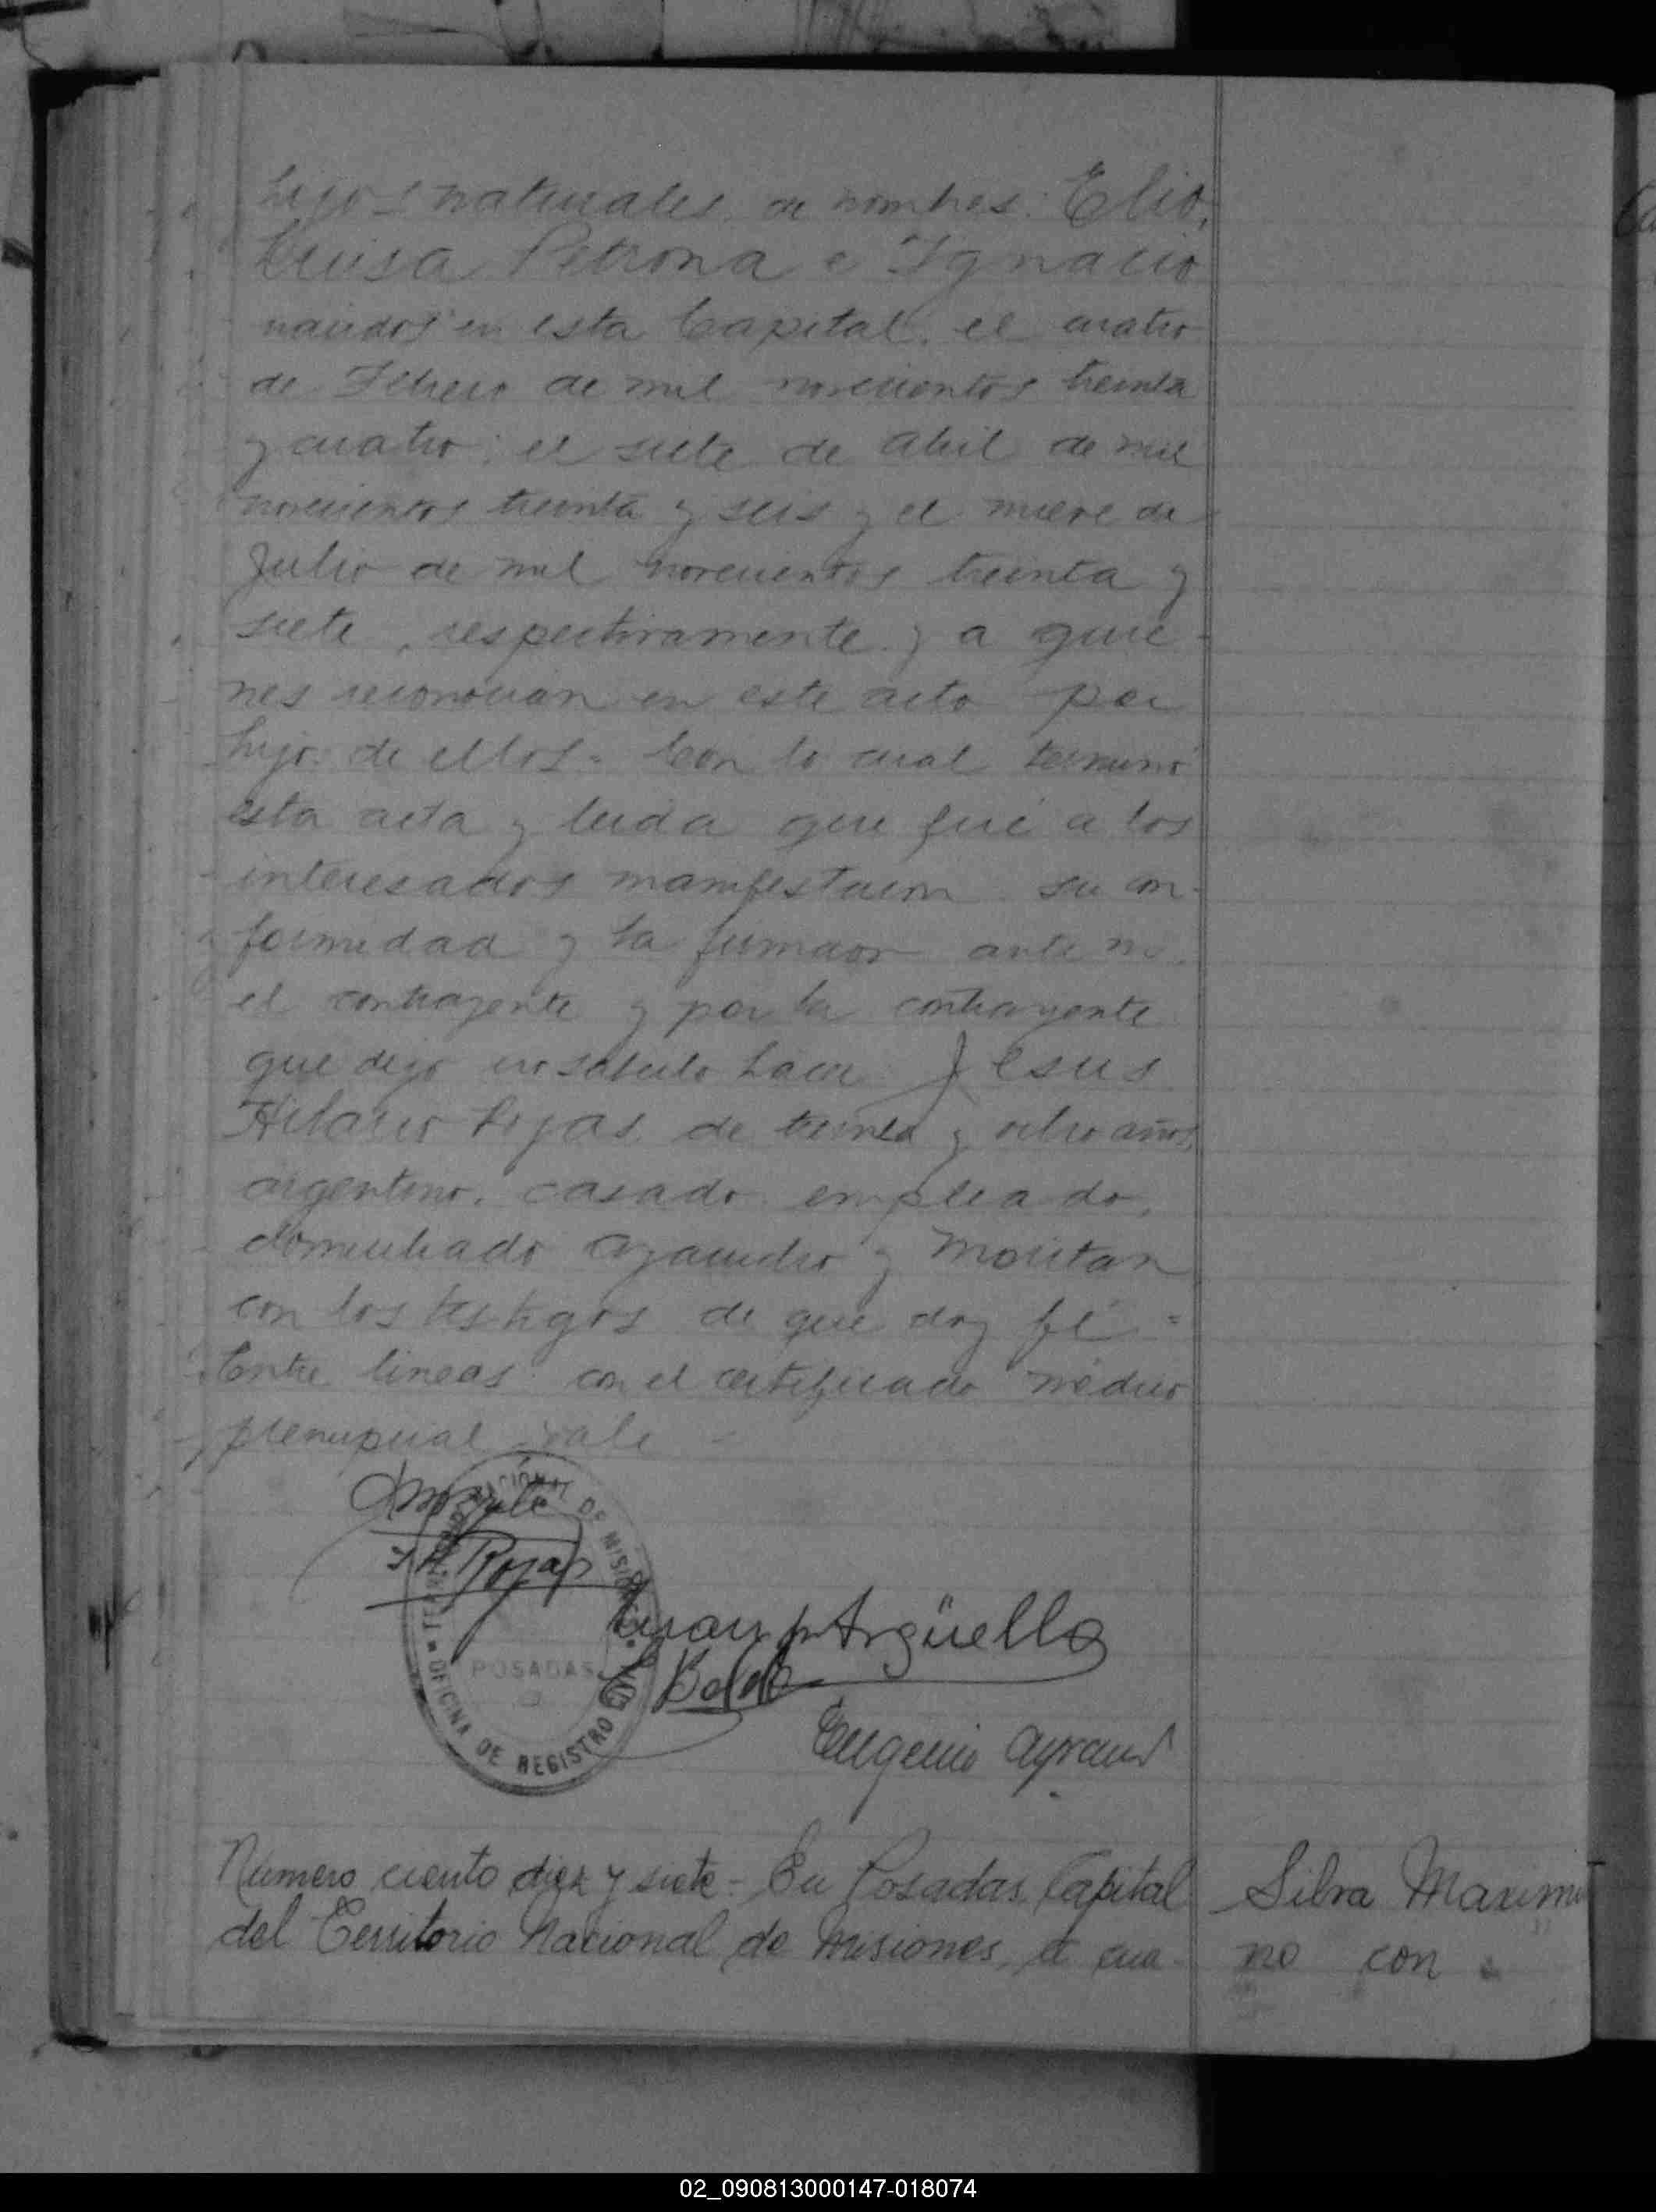 hijos naturales de nombres: Elio,
Luisa Petrona e Ignacio
nacidos en esta Capital, el cuatro
de Febrero de mil novecientos treinta
y cuatro; el siete de abril de mil
novecientos treinta y seis y el nueve de
Julio de mil novecientos treinta y
siete, respectivamente y a quie-
nes reconocian en este acto por
hijo de ellos. Con lo cual terminó
esta acta y leida que fué a los
interesados manifestaron su con-
formidad y la firmaron ante mi
el contrayente y por la contrayente
que dijo no saberlo hacer Jesus
Hilario Rojas de treinta y ocho años,
argentino, casado empleado,
domiciliado Ayacucho y
con los testigos de que doy fé =
Entre lineas: con el certificado médico
prenupcial vale
J H Rojas
Juan Argüello
Eugenio Ayraud
TERRITORIO NACIONAL DE MISIONES
POSADAS
OFICINA DE REGISTRO CIVIL
Número ciento diez y siete = En Posadas Capital
del Territorio Nacional de Misiones, a cua-
Silva Maximi
no con
02_090813000147-018074